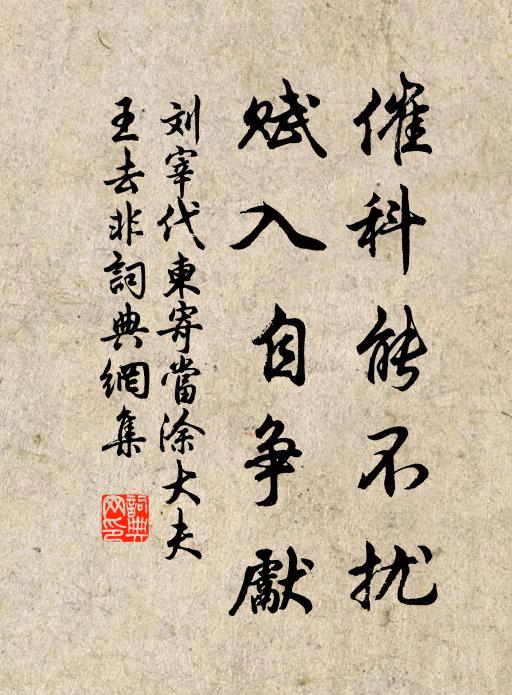 催科能不扰
赋入自争獻
刘宰代柬寄當涂大夫
王去非詞典網集
詞典网印